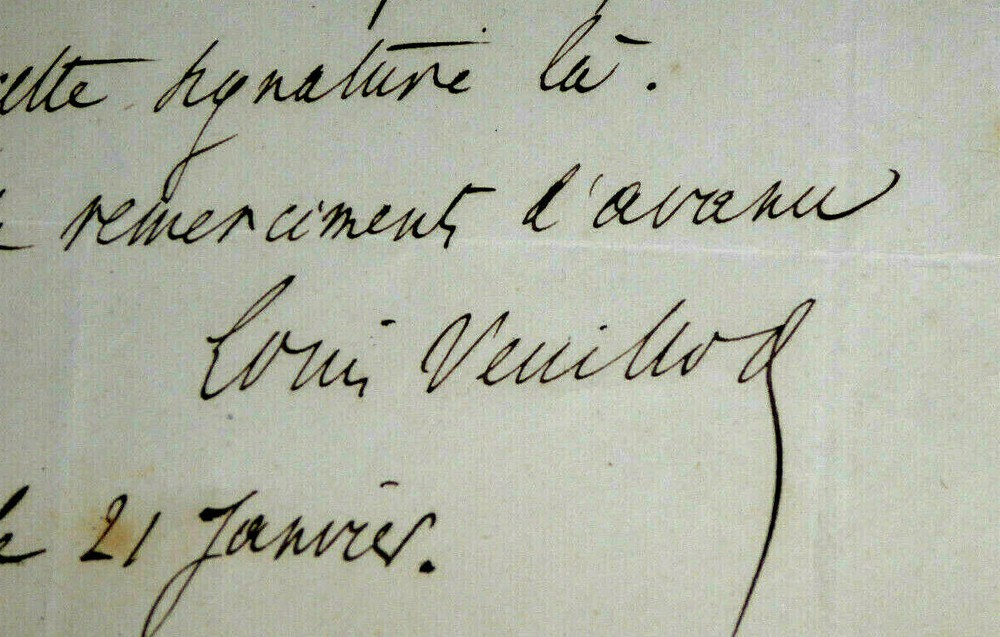 cette signature là.
remerciments d'avance
Louis Veuillot
le 21 Janvier.